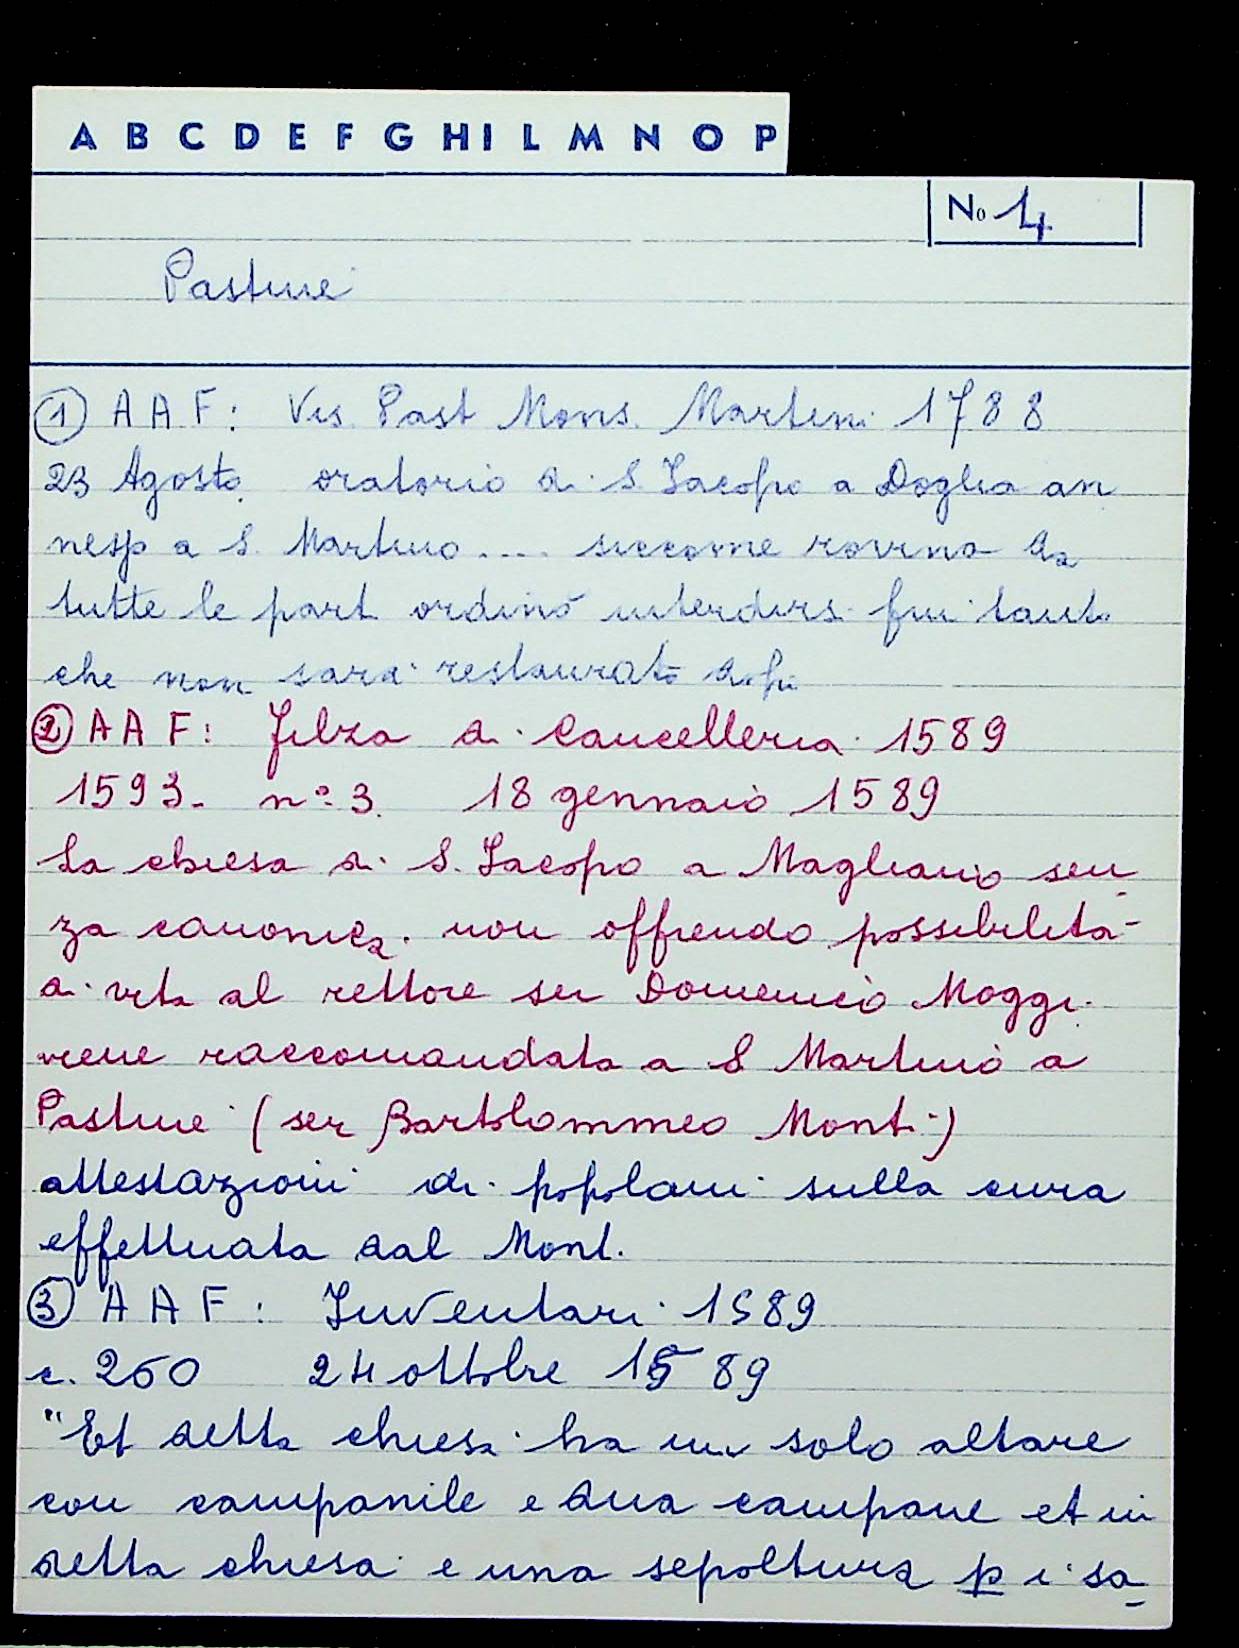 A B C D E F G H I L M N O P
No 4
Pastine
① A A F: Vis. Past Mons. Martini 1788
23 Agosto oratorio di S. Jacopo a Doglia an
nesso a S. Martino .... siccome rovina da
tutte le part ordinò interdirsi fin tanto
che non sarà restaurato
② A A F: Filza di Cancelleria 1589
1593- n° 3. 18 gennaio 1589
La chiesa di S. Jacopo a Magliano sen
za canonica non offrendo possibilità
di vita al rettore ser Domenico Moggi
viene raccomandata a S Martino a
Pastine (ser Bartolommeo Monti)
attestazioni di popolani sulla cura
effettuata dal Mont.
③ A A F: Inventari 1589
c. 260 24 ottobre 1589
"Et detta chiesa ha un solo altare
con campanile e dua campane et in
detta chiesa e una sepoltura p i sa-